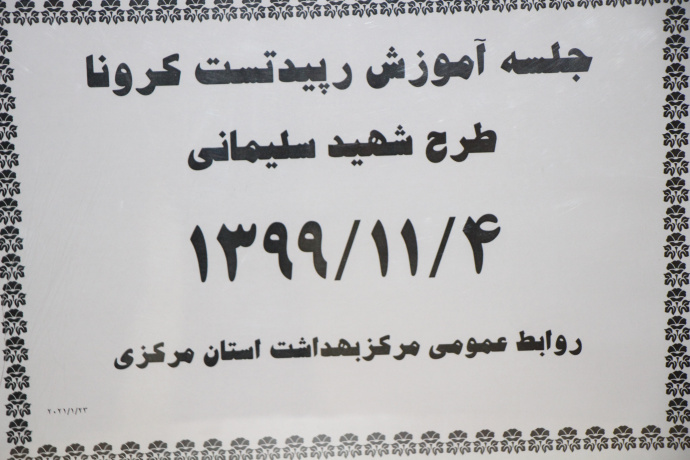 جلسه آموزش رپیدتست کرونا
طرح شهید سلیمانی
۱۳۹۹/۱۱/۴
روابط عمومی مرکزبهداشت استان مرکزی
۲۰۲۱/۱/۲۳